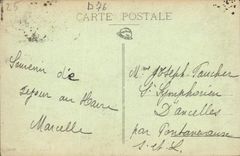 25
D 76
CARTE POSTALE
Souvenir de
séjour au Havre
Marcelle
Mme Joseph Foucher
St Symphorien
D'ancelles
par Pontanevaux
S. et L.